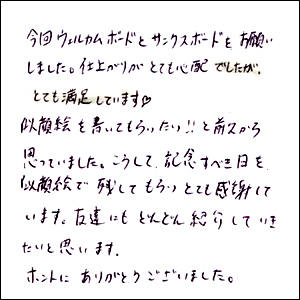 今回ウェルカムボードとサンクスボードをお願い
しました。仕上がりがとても心配でしたが、
とても満足しています♡
似顔絵を書いてもらいたい!!と前から
思っていました。こうして、記念すべき日を
似顔絵で残してもらいとても感謝して
います。友達にもどんどん紹介していき
たいと思います。
ホントにありがとうございました。